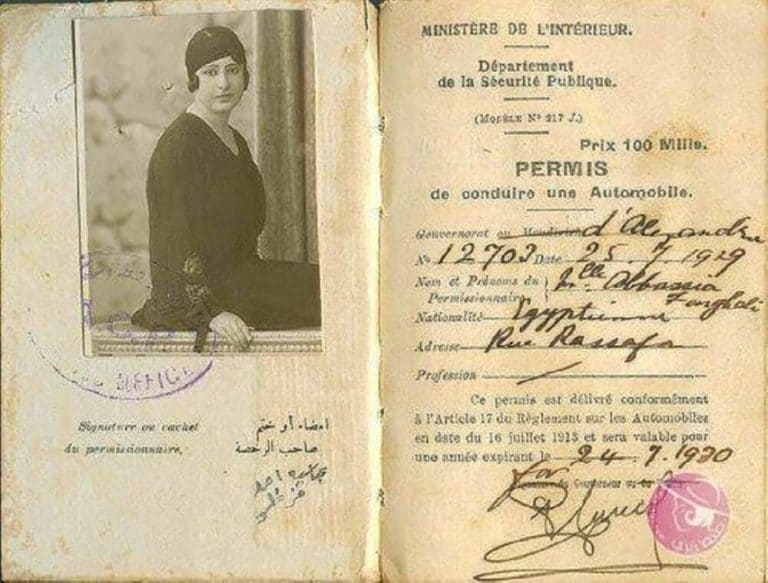 OFFICE
Signature ou cachet
du permissionnaire,
امضاء أو ختم
صاحب الرخصة
MINISTÈRE DE L'INTÉRIEUR.
Département
de la Sécurité Publique.
(MODÈLE Nº 217 J.)
Prix 100 Mills.
PERMIS
de conduire une Automobile.
Gouvernorat ou Moudirieh d'Alexandrie
Nº 12703 Date 25 7 1929
Nom et Prénoms du Permissionnaire } Mlle Abbassia
Nationalité Egyptienne
Adresse Rue Rassafa
Profession
Ce permis est délivré conformément
à l'Article 17 du Règlement sur les Automobiles
en date du 16 juillet 1913 et sera valable pour
une année expirant le 24.7.1930
for